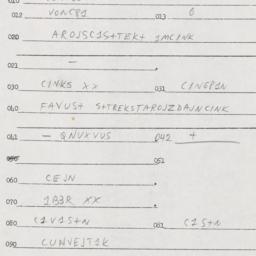 012 VONCP1 013 0
020 AROJSC1S+TEK+ 1MCINK
021 -
030 CINKS XX 031 CINEP1N
040 FAVUS+ S+TREKSTAROJZDAJNCINK
041 - QNUXVUS 042 +
051
060 CEJN
070 1B3R XX
080 C1V1S+N 081 C1S+N
090 CUNVEJT1K